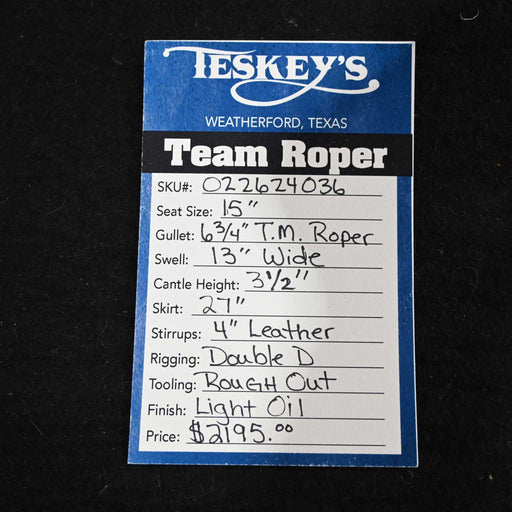 TESKEY'S
WEATHERFORD, TEXAS
Team Roper
SKU#: 022624036
Seat Size: 15"
Gullet: 6 3/4" T.M. Roper
Swell: 13" Wide
Cantle Height: 3 1/2"
Skirt: 27"
Stirrups: 4" Leather
Rigging: Double D
Tooling: ROUGH Out
Finish: Light Oil
Price: $2195.00